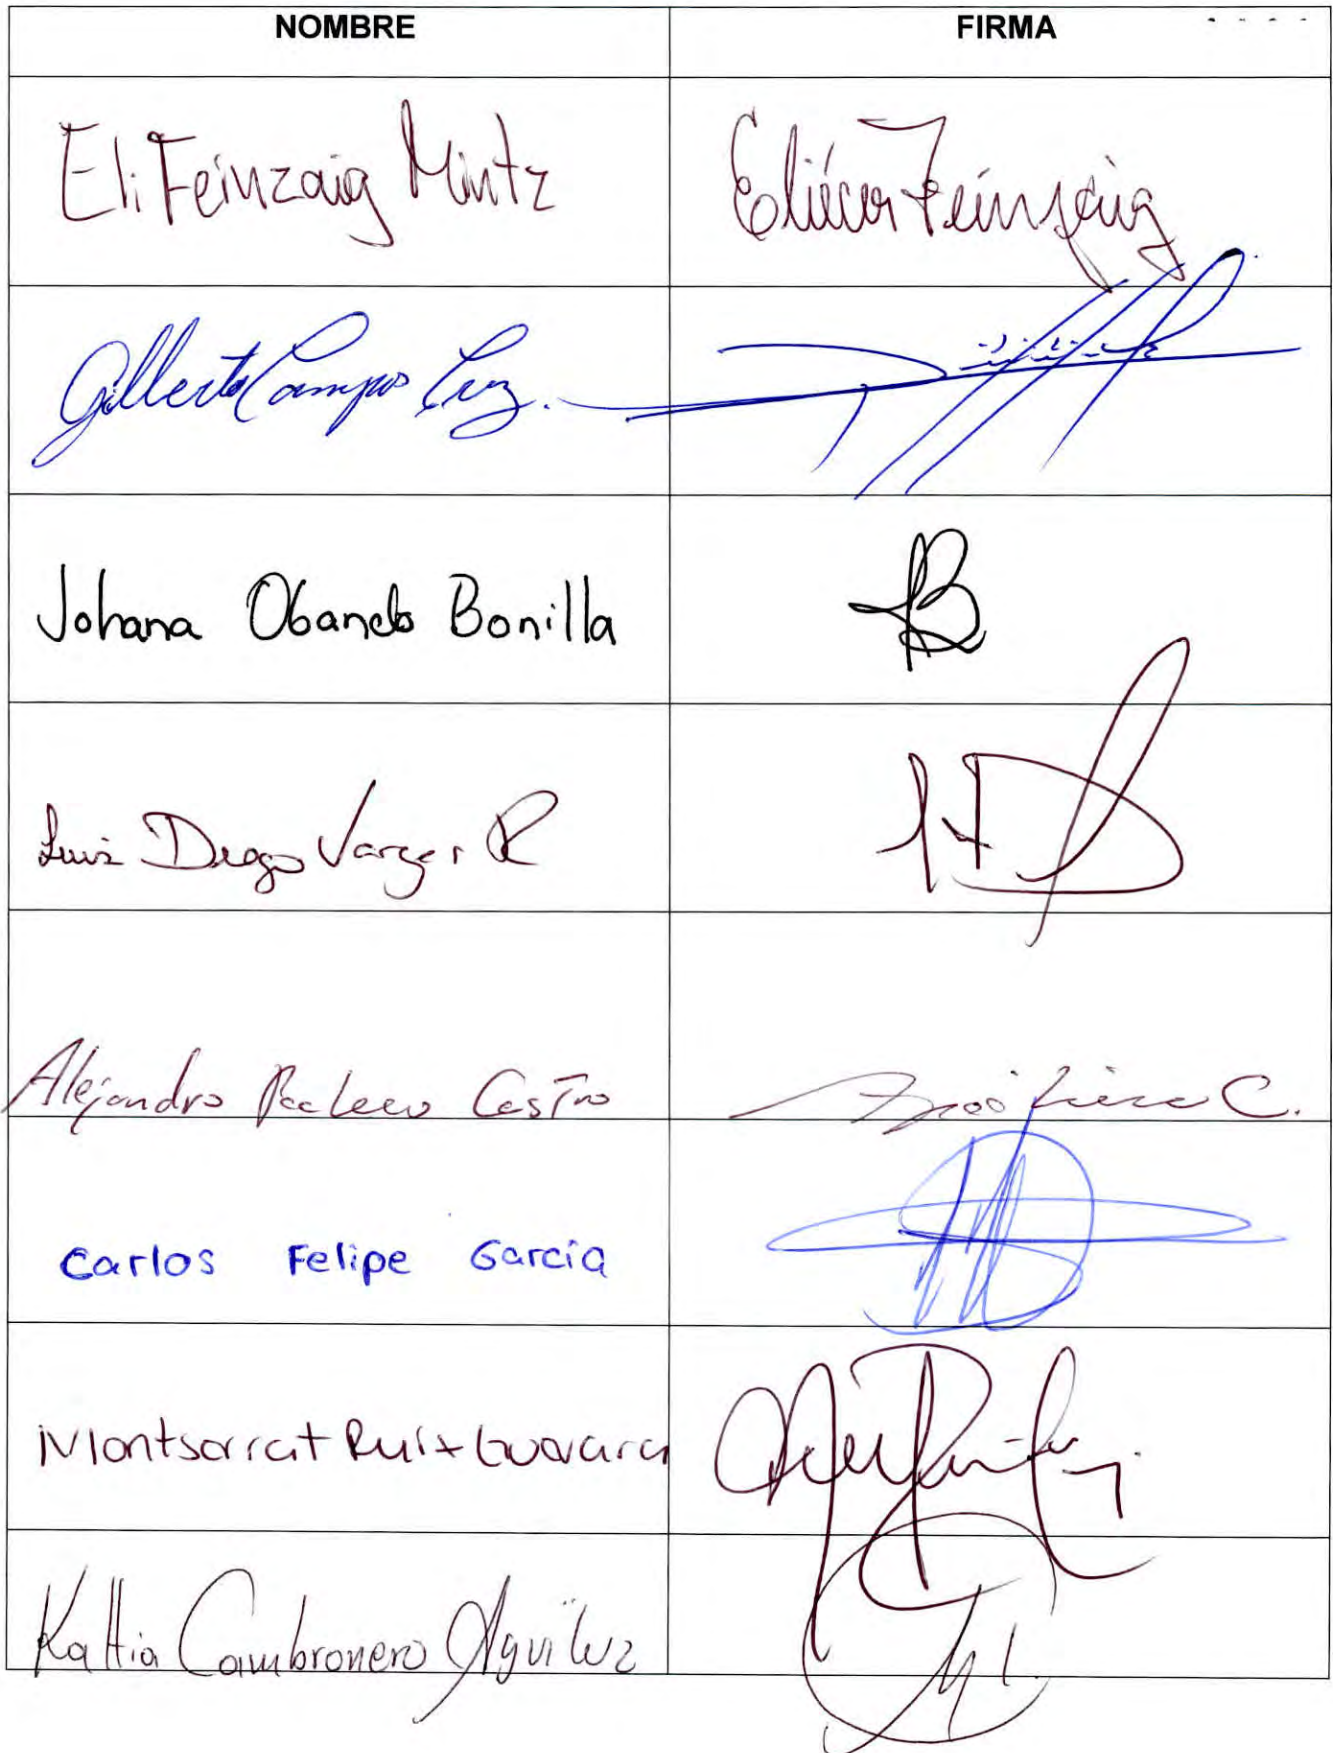 NOMBRE FIRMA
Eli Feinzaig Mintz Eliécer Feinzaig
Gilberto Campos Cruz.
Johana Obando Bonilla
Luis Diego Vargas R
Alejandro Pacheco Castro
Carlos Felipe García
Montsarrat Ruíz Guevara
Kattia Cambronero Aguiluz